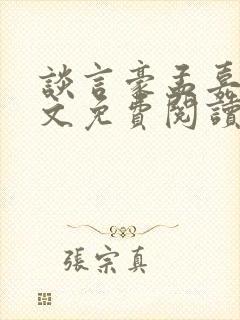 談言豪孟嘉
文免費閱讀
張宗真